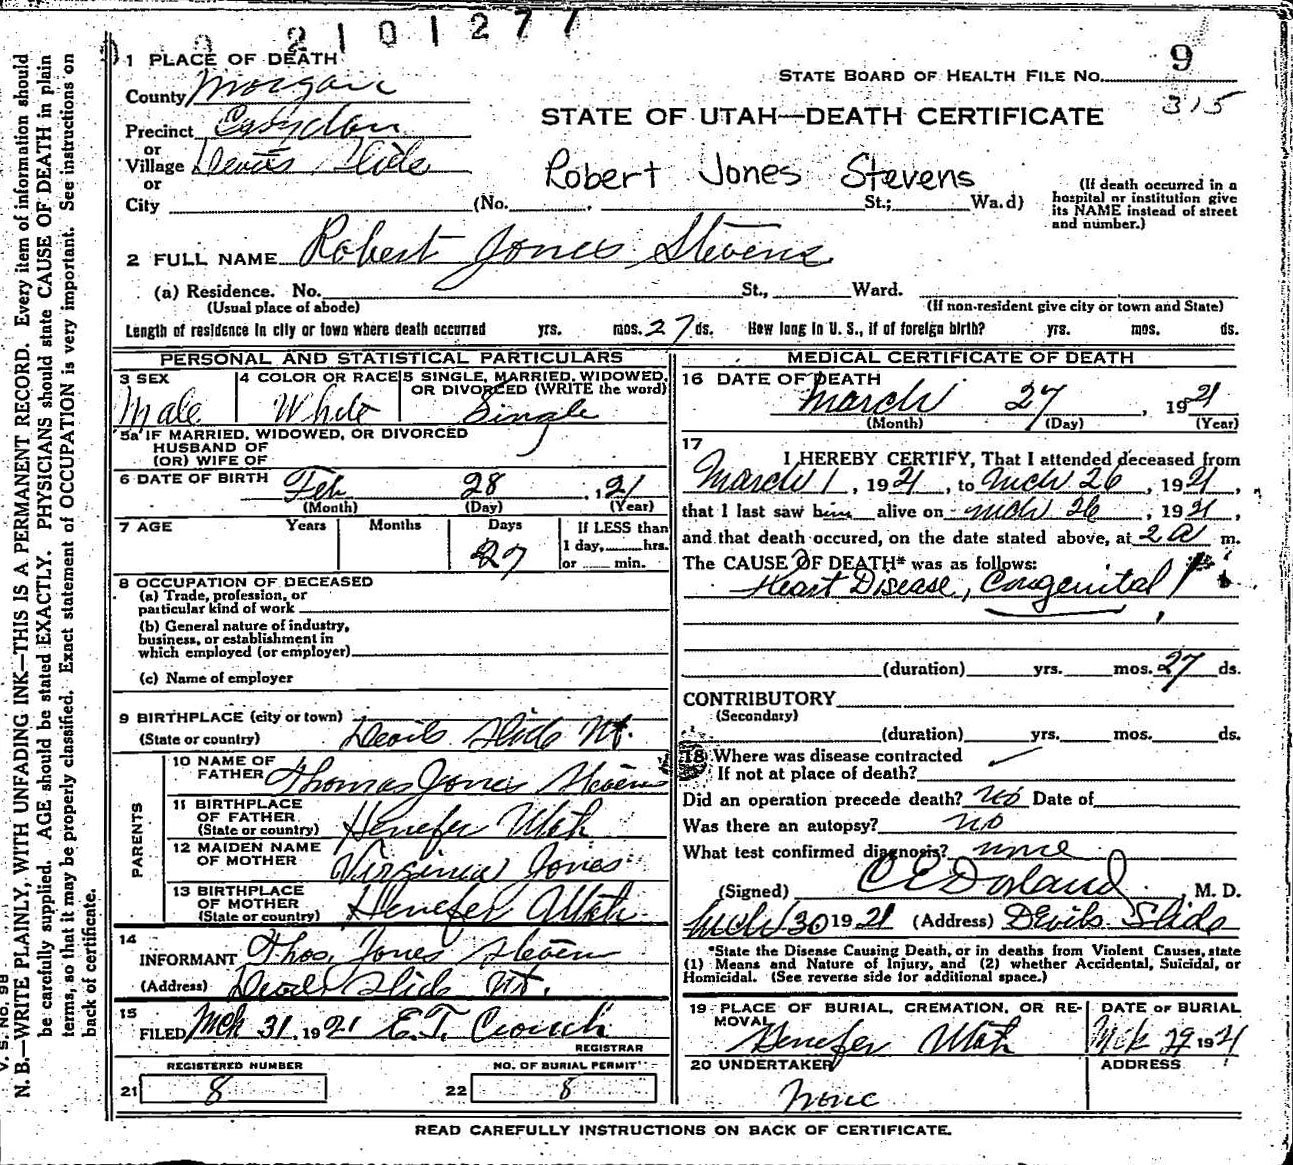 2101277
1 PLACE OF DEATH
9
STATE BOARD OF HEALTH FILE No.
315
County Morgan
STATE OF UTAH—DEATH CERTIFICATE
Precinct Croydon
or
Village Devils Slide
Robert Jones Stevens
or
City (No. , St.; Wa.d)
(If death occurred in a hospital or institution give its NAME instead of street and number.)
2 FULL NAME Robert Jones Stevens
(a) Residence. No. St., Ward.
(Usual place of abode) (If non-resident give city or town and State)
Length of residence in city or town where death occurred yrs. mos. 27 ds. How long in U. S., if of foreign birth? yrs. mos. ds.
PERSONAL AND STATISTICAL PARTICULARS
3 SEX
Male
4 COLOR OR RACE
White
5 SINGLE, MARRIED, WIDOWED,
OR DIVORCED (WRITE the word)
Single
5a IF MARRIED, WIDOWED, OR DIVORCED
HUSBAND OF
(OR) WIFE OF
6 DATE OF BIRTH Feb 28, 121
(Month) (Day) (Year)
7 AGE Years Months Days
27
If LESS than
1 day, hrs.
or min.
8 OCCUPATION OF DECEASED
(a) Trade, profession, or
particular kind of work
(b) General nature of industry,
business, or establishment in
which employed (or employer)
(c) Name of employer
9 BIRTHPLACE (city or town)
(State or country) Devils Slide Ut.
PARENTS
10 NAME OF
FATHER Thomas Jones Stevens
11 BIRTHPLACE
OF FATHER
(State or country) Henefer Utah
12 MAIDEN NAME
OF MOTHER Virginia Jones
13 BIRTHPLACE
OF MOTHER
(State or country) Henefer Utah
14
INFORMANT Thos. Jones Stevens
(Address) Devils Slide Ut.
15
FILED Mch 31, 1921 E.T. Crouch
REGISTRAR
REGISTERED NUMBER
21 8
NO. OF BURIAL PERMIT
22 8
MEDICAL CERTIFICATE OF DEATH
16 DATE OF DEATH
March 27, 1921
(Month) (Day) (Year)
17
I HEREBY CERTIFY, That I attended deceased from
March 1, 1921, to Mch 26, 1921,
that I last saw him alive on Mch 26, 1921,
and that death occured, on the date stated above, at 2 a m.
The CAUSE OF DEATH* was as follows:
Heart Disease, Congenital
(duration) yrs. mos. 27 ds.
CONTRIBUTORY
(Secondary)
(duration) yrs. mos. ds.
18 Where was disease contracted
If not at place of death?
Did an operation precede death? No Date of
Was there an autopsy? no
What test confirmed diagnosis? none
(Signed) C E Dorland, M. D.
Mch 30 1921 (Address) Devils Slide
*State the Disease Causing Death, or in deaths from Violent Causes, state
(1) Means and Nature of Injury, and (2) whether Accidental, Suicidal, or
Homicidal. (See reverse side for additional space.)
19 PLACE OF BURIAL, CREMATION, OR RE-
MOVAL
Henefer Utah
DATE OF BURIAL
Mch 29 1921
20 UNDERTAKER
none
ADDRESS
READ CAREFULLY INSTRUCTIONS ON BACK OF CERTIFICATE.
V. S. No. 98
N. B.—WRITE PLAINLY, WITH UNFADING INK—THIS IS A PERMANENT RECORD. Every item of information should
be carefully supplied. AGE should be stated EXACTLY. PHYSICIANS should state CAUSE OF DEATH in plain
terms, so that it may be properly classified. Exact statement of OCCUPATION is very important. See instructions on
back of certificate.